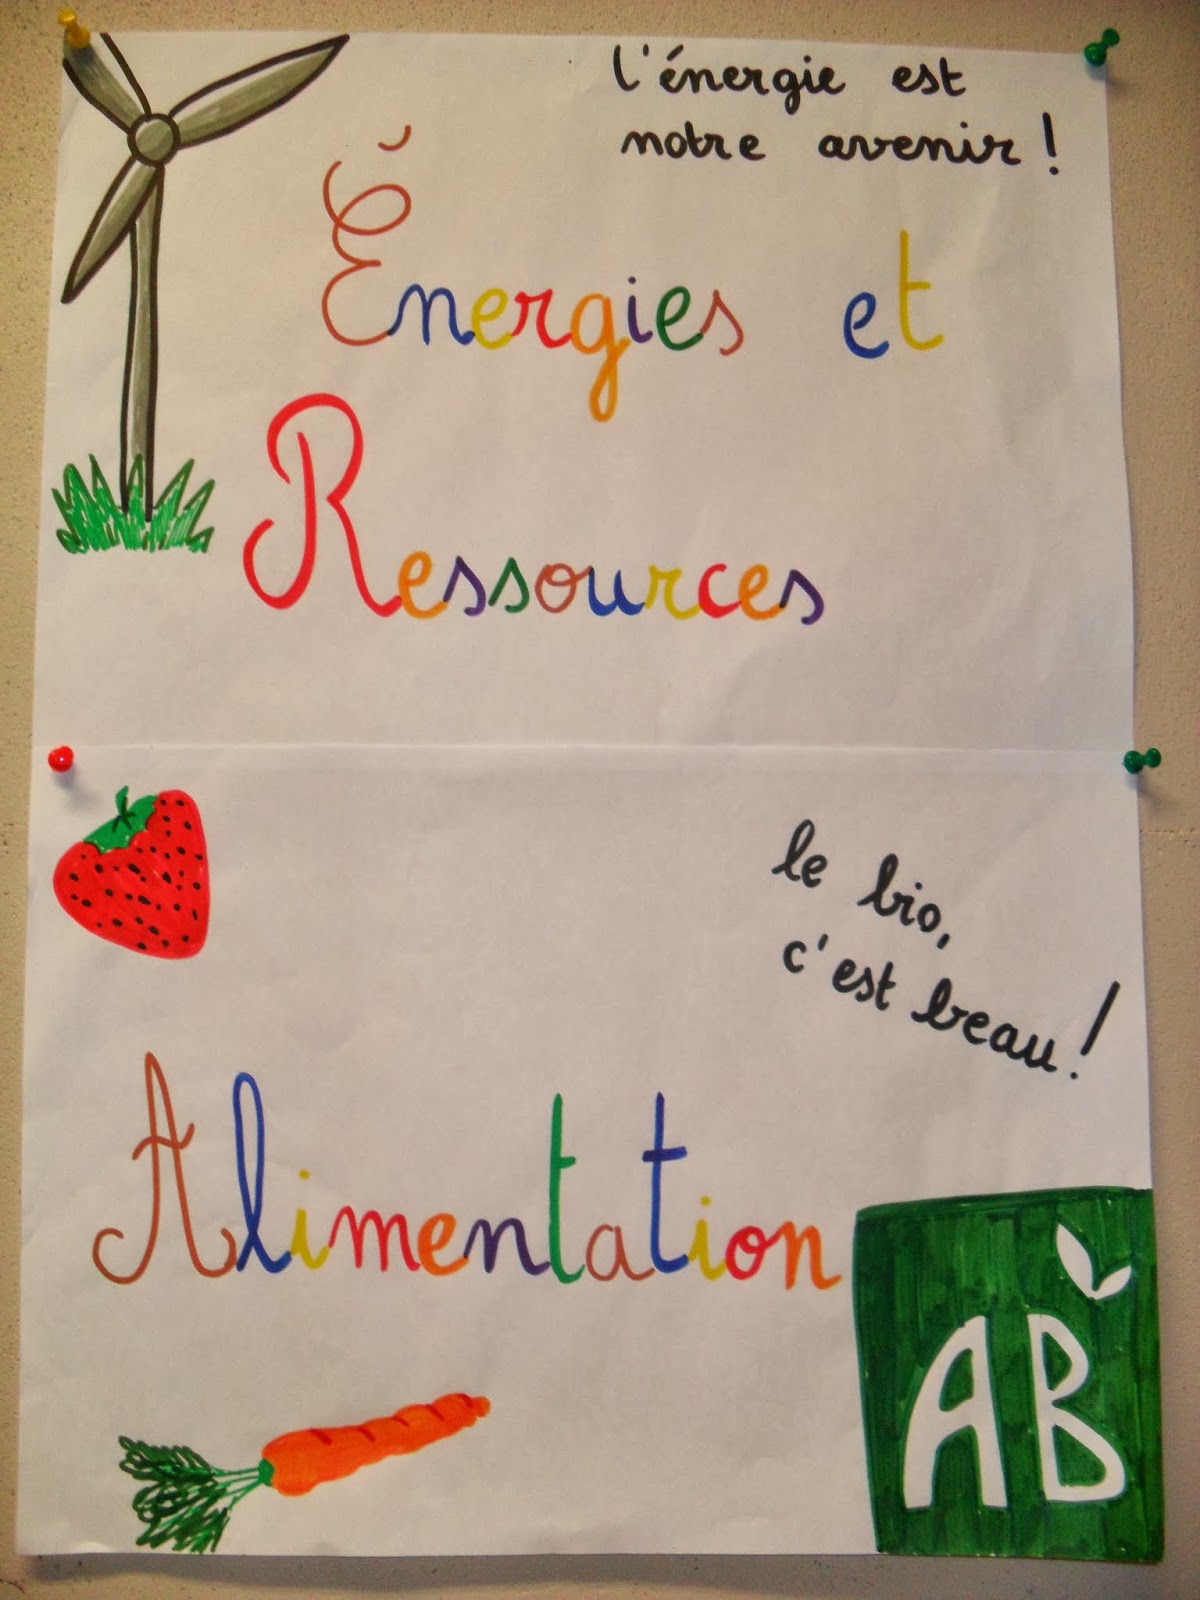 l'énergie est
notre avenir !
Énergies et
Ressources
le bio,
c'est beau !
Alimentation
AB